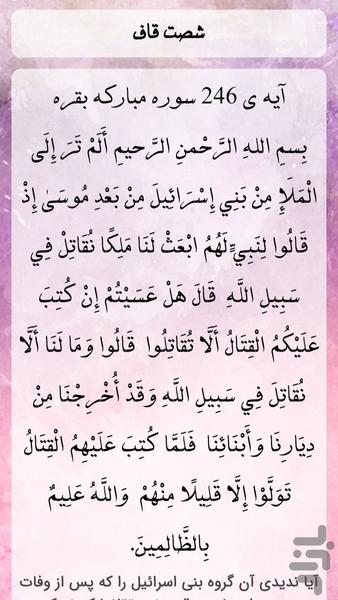 شصت قاف
آیه ی 246 سوره مبارکه بقره
بِسمِ اللهِ الرَّحْمنِ الرَّحیمِ أَلَمْ تَرَ إِلَى
الْمَلَإِ مِنْ بَنِي إِسْرَائِيلَ مِنْ بَعْدِ مُوسَىٰ إِذْ
قَالُوا لِنَبِيٍّ لَهُمُ ابْعَثْ لَنَا مَلِكًا نُقَاتِلْ فِي
سَبِيلِ اللَّهِ قَالَ هَلْ عَسَيْتُمْ إِنْ كُتِبَ
عَلَيْكُمُ الْقِتَالُ أَلَّا تُقَاتِلُوا قَالُوا وَمَا لَنَا أَلَّا
نُقَاتِلَ فِي سَبِيلِ اللَّهِ وَقَدْ أُخْرِجْنَا مِنْ
دِيَارِنَا وَأَبْنَائِنَا فَلَمَّا كُتِبَ عَلَيْهِمُ الْقِتَالُ
تَوَلَّوْا إِلَّا قَلِيلًا مِنْهُمْ وَاللَّهُ عَلِيمٌ
بِالظَّالِمِينَ.
آیا ندیدی آن گروه بنی اسرائیل را که پس از وفات
بازار